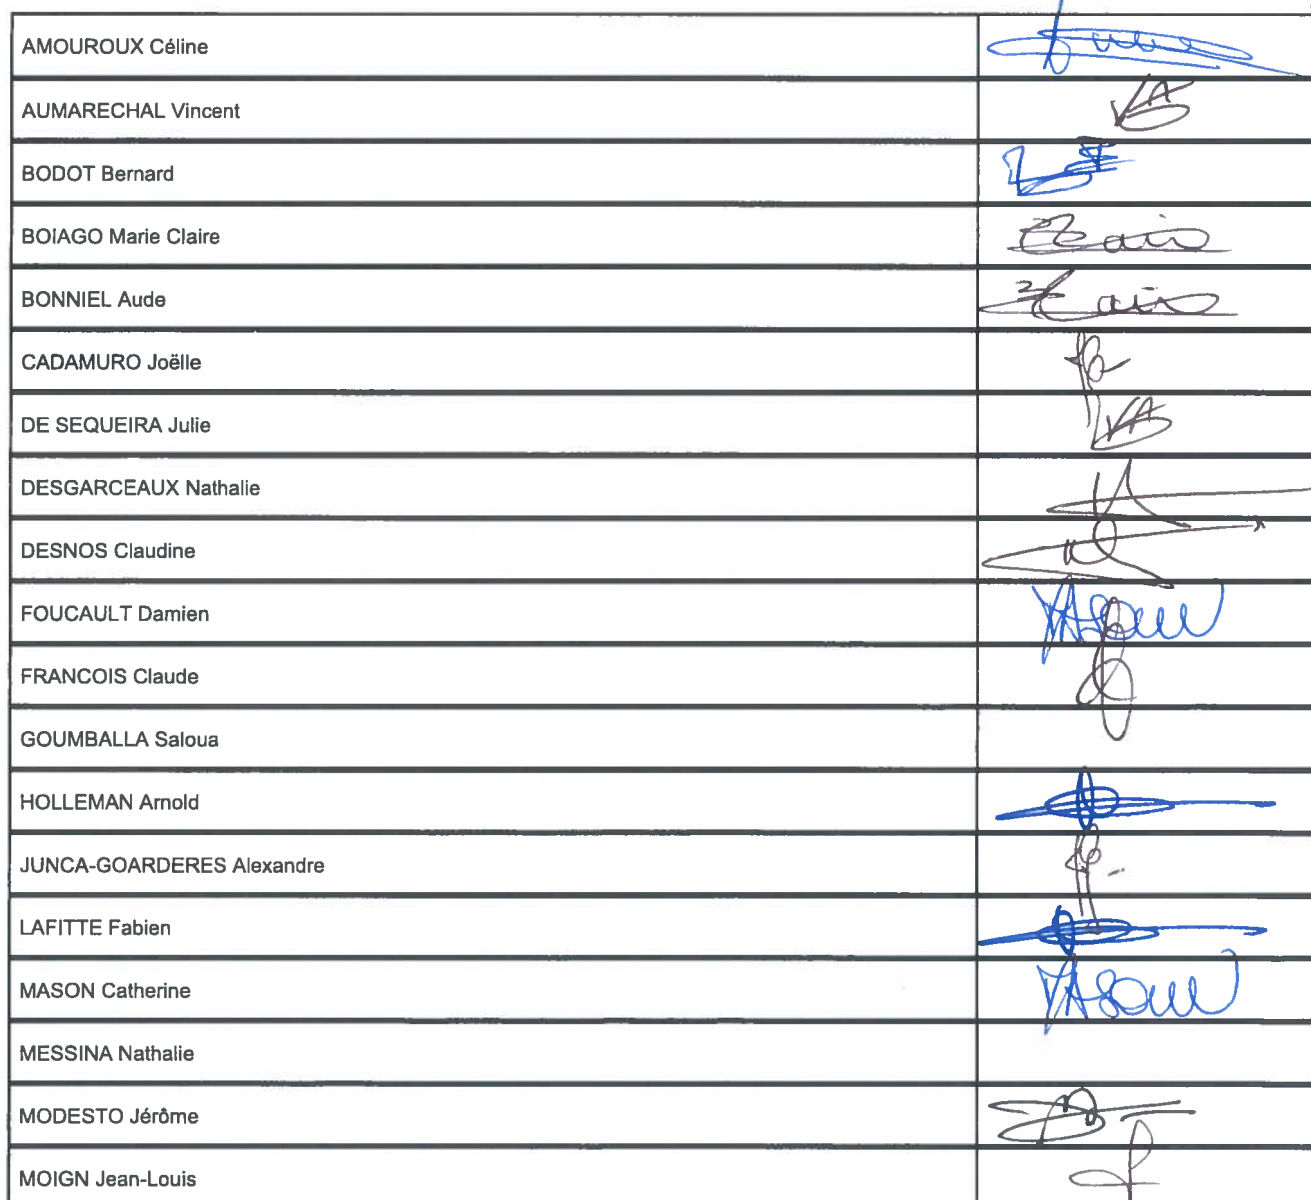 AMOUROUX Céline
AUMARECHAL Vincent
BODOT Bernard
BOIAGO Marie Claire
BONNIEL Aude
CADAMURO Joëlle
DE SEQUEIRA Julie
DESGARCEAUX Nathalie
DESNOS Claudine
FOUCAULT Damien
FRANCOIS Claude
GOUMBALLA Saloua
HOLLEMAN Arnold
JUNCA-GOARDERES Alexandre
LAFITTE Fabien
MASON Catherine
MESSINA Nathalie
MODESTO Jérôme
MOIGN Jean-Louis